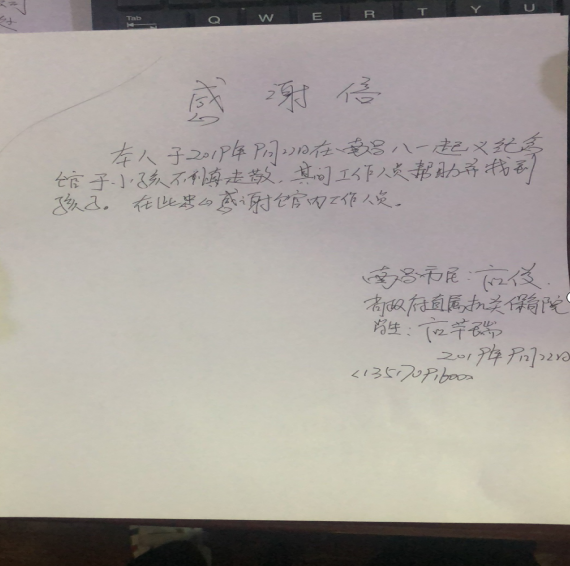 Tab Q W E R T Y U
感谢信
本人于2019年9月22日在南昌八一起义纪念
馆于小孩不慎走散,其间工作人员帮助并找到
孩子。在此衷心感谢馆内工作人员。
南昌市民:
省政府直属机关保育院
学生:
2019年9月22日